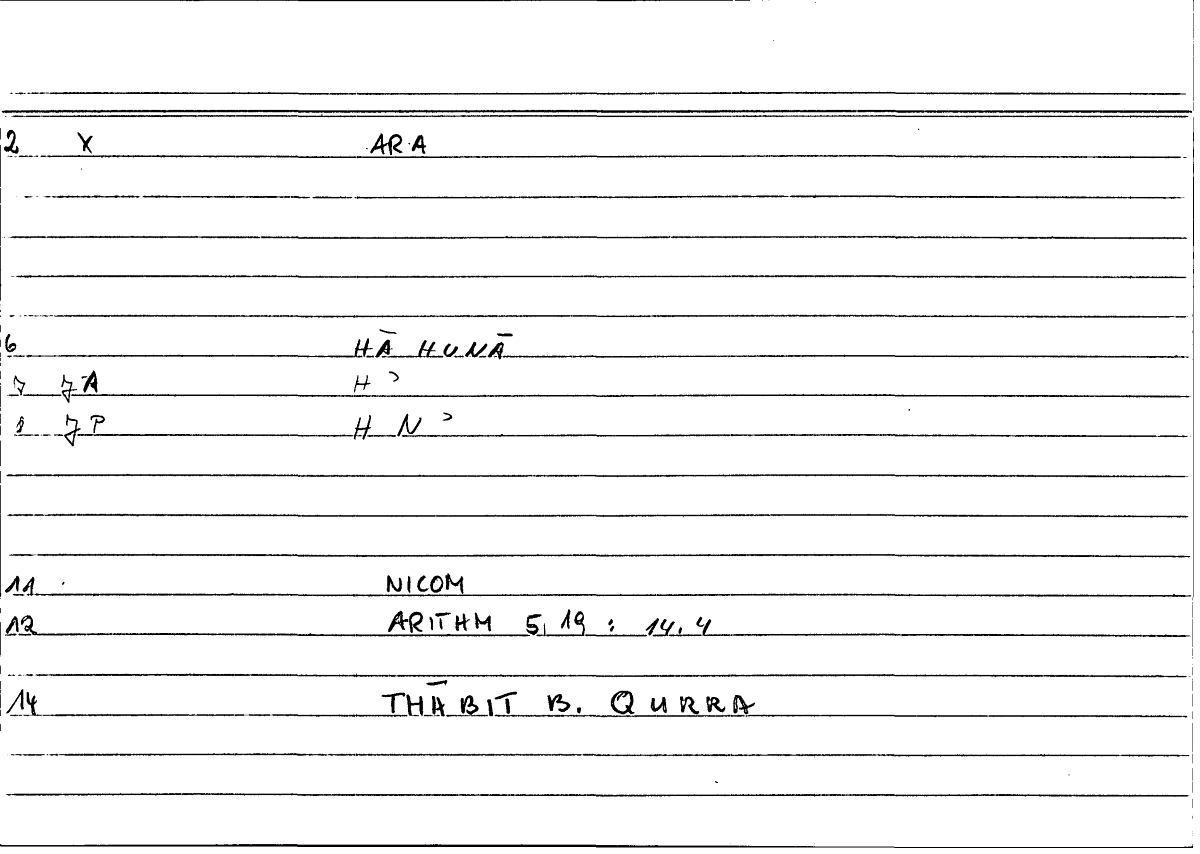 2 X ARA
6 HĀ HUNĀ
7 JA H ʾ
8 JP H N ʾ
11 NICOM
12 ARITHM 5,19 : 14.4
14 THĀBIT B. QURRA